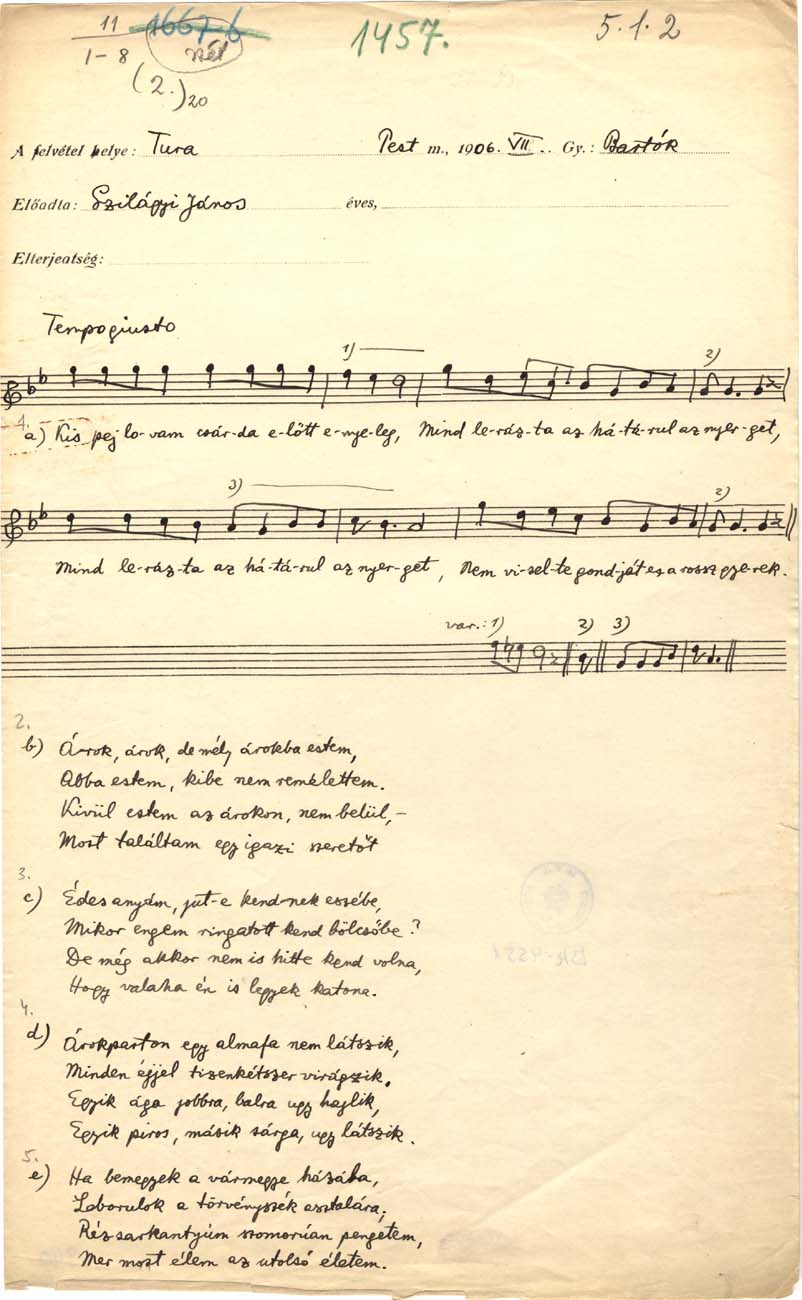 11
1667 b
1457.
5.1.2
1-8
(2.)20
A felvétel helye: Tura Pest m., 1906. VII. Gy.: Bartók
Előadta: Szilágyi János éves,
Elterjeatség:
Tempo giusto
1)
2)
1.
a) Kis pej lo-vam csár-da e-lőtt e-nye-leg, Mind le-ráz-ta az há-tá-rul az nyer-get,
3)
2)
Mind le-ráz-ta az há-tá-rul az nyer-get, Nem vi-sel-te gond-ját ez a rossz gye-rek.
var.: 1) 2) 3)
2.
b) Á-rok, árok, de mély árokba estem,
Abba estem, kibe nem reméllettem.
Kivül estem az árokon, nem belül, –
Most találtam egy igazi szeretőt
3.
c) Édes anyám, jut-e kend-nek eszébe,
Mikor engem ringatott kend bölcsőbe?
De még akkor nem is hitte kend volna,
Hogy valaha én is legyek katona.
4.
d) Árokparton egy almafa nem látszik,
Minden éjjel tizenkétszer virágzik.
Egyik ága jobbra, balra ugy hajlik,
Egyik piros, másik sárga, ugy látszik.
5.
e) Ha bemegyek a vármegye házába,
Leborulok a törvényszék asztalára;
Rézsarkantyúm szomorúan pengetem,
Mer most élem az utolsó életem.